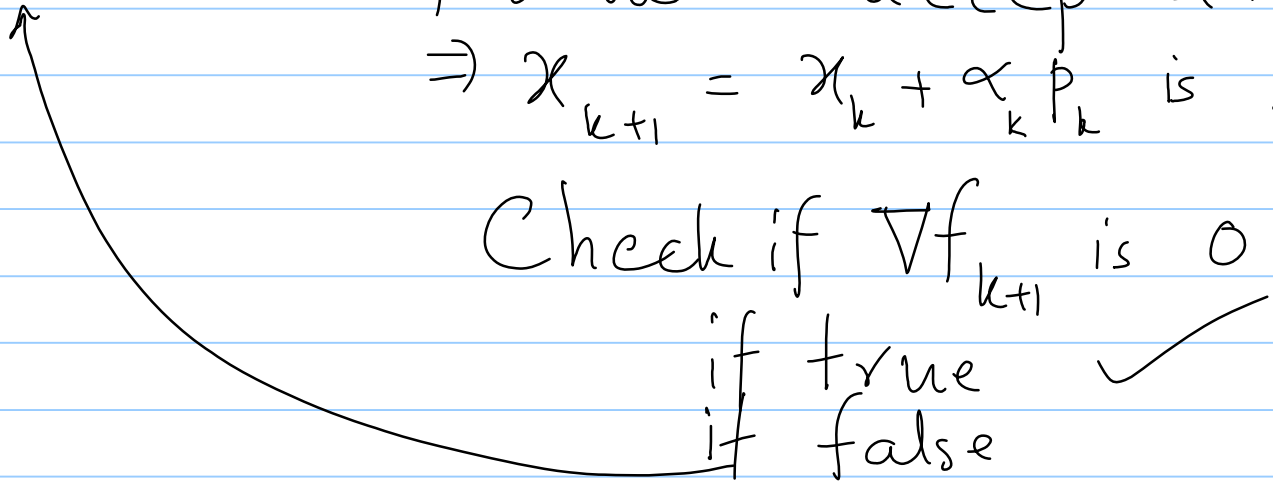 accep
⇒ x_{k+1} = x_k + α_k p_k is
Check if ∇f_{k+1} is 0
if true ✓
if false